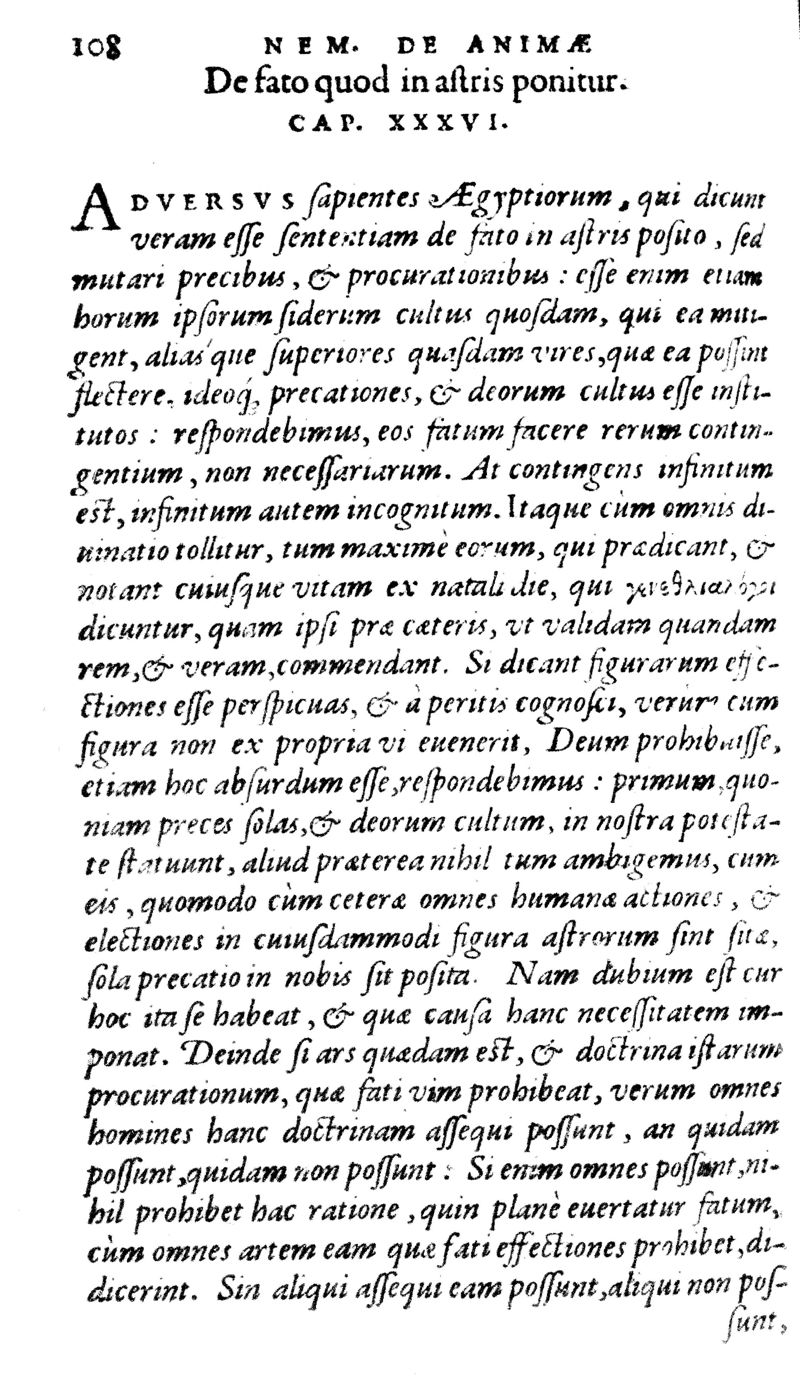 108 NEM. DE ANIMÆ
De fato quod in astris ponitur.
CAP. XXXVI.
ADVERSVS sapientes Ægyptiorum, qui dicunt
veram esse sententiam de fato in astris posito, sed
mutari precibus, & procurationibus: esse enim etiam
horum ipsorum siderum cultus quosdam, qui ea miti-
gent, alias que superiores quasdam vires, quæ ea possint
flectere. ideoq́, precationes, & deorum cultus esse insti-
tutos: respondebimus, eos fatum facere rerum contin-
gentium, non necessariarum. At contingens infinitum
est, infinitum autem incognitum. Itaque cùm omnis di-
uinatio tollitur, tum maximè eorum, qui prædicant, &
notant cuiusque vitam ex natali die, qui γενεθλιαλόγοι
dicuntur, quam ipsi præ cæteris, vt validam quandam
rem, & veram, commendant. Si dicant figurarum effe-
ctiones esse perspicuas, & à peritis cognosci, verum cum
figura non ex propria vi euenerit, Deum prohibuisse,
etiam hoc absurdum esse, respondebimus: primum, quo-
niam preces solas, & deorum cultum, in nostra potesta-
te statuunt, aliud præterea nihil tum ambigemus, cum
eis, quomodo cùm ceteræ omnes humanæ actiones, &
electiones in cuiusdammodi figura astrorum sint sitæ,
sola precatio in nobis sit posita. Nam dubium est cur
hoc ita se habeat, & quæ causa hanc necessitatem im-
ponat. Deinde si ars quædam est, & doctrina istarum
procurationum, quæ fati vim prohibeat, verum omnes
homines hanc doctrinam assequi possunt, an quidam
possunt, quidam non possunt: Si enim omnes possunt, ni-
hil prohibet hac ratione, quin planè euertatur fatum,
cùm omnes artem eam quæ fati effectiones prohibet, di-
dicerint. Sin aliqui assequi eam possunt, aliqui non pos-
sunt,